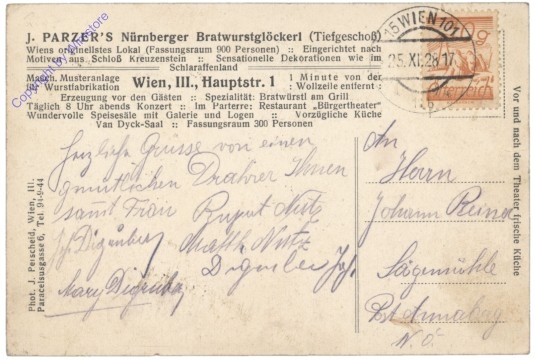 J. PARZER'S Nürnberger Bratwurstglöckerl (Tiefgeschoß)
Wiens originellstes Lokal (Fassungsraum 900 Personen) :: Eingerichtet nach
Motiven aus Schloß Kreuzenstein :: Sensationelle Dekorationen wie im
Schlaraffenland
Masch. Musteranlage
für Wurstfabrikation
Wien, III., Hauptstr. 1
1 Minute von der
Wollzeile entfernt
Erzeugung vor den Gästen :: Spezialität: Bratwürstl am Grill
Täglich 8 Uhr abends Konzert :: Im Parterre: Restaurant „Bürgertheater"
Wundervolle Speisesäle mit Galerie und Logen :: Vorzügliche Küche
Van Dyck-Saal :: Fassungsraum 300 Personen
Herzliche Grüsse von einen
gmütlichen Drahrer Ihnen
samt Frau Rupert Nutz
Math Nutz
Mary
Phot. J. Perscheid, Wien, III.,
Paracelsusgasse 6, Tel. 94-9-44
Vor und nach dem Theater frische Küche
An
Herrn
Johann
Sägemühle
Post
N.Ö.
15 WIEN 101
25.XI.26.17
Österreich
Copyright by